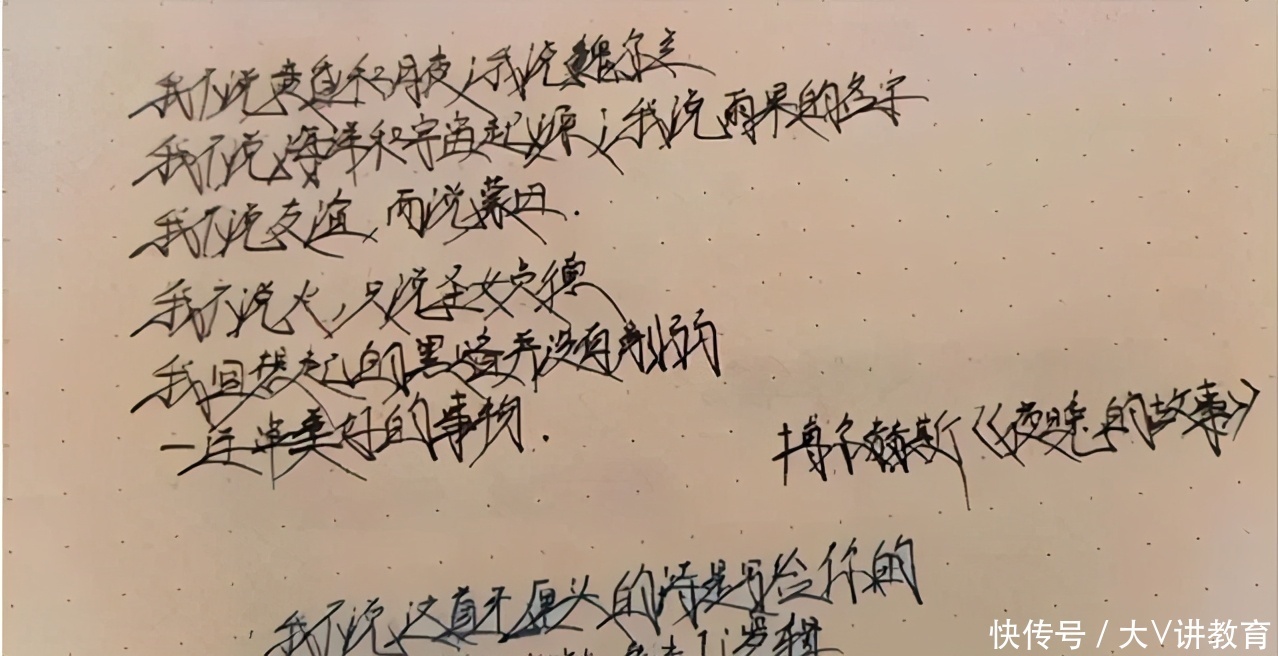 我不说黄昏和月夜；我说魏尔兰
我不说海洋和宇宙起源；我说雨果的名字
我不说友谊，而说蒙田.
我不说火，只说圣女贞德
我回想起的黑暗并没有削弱
一连串美好的事物.
博尔赫斯《夜晚的故事》
我不说这首无厘头的诗是写给你的
快传号 / 大V讲教育